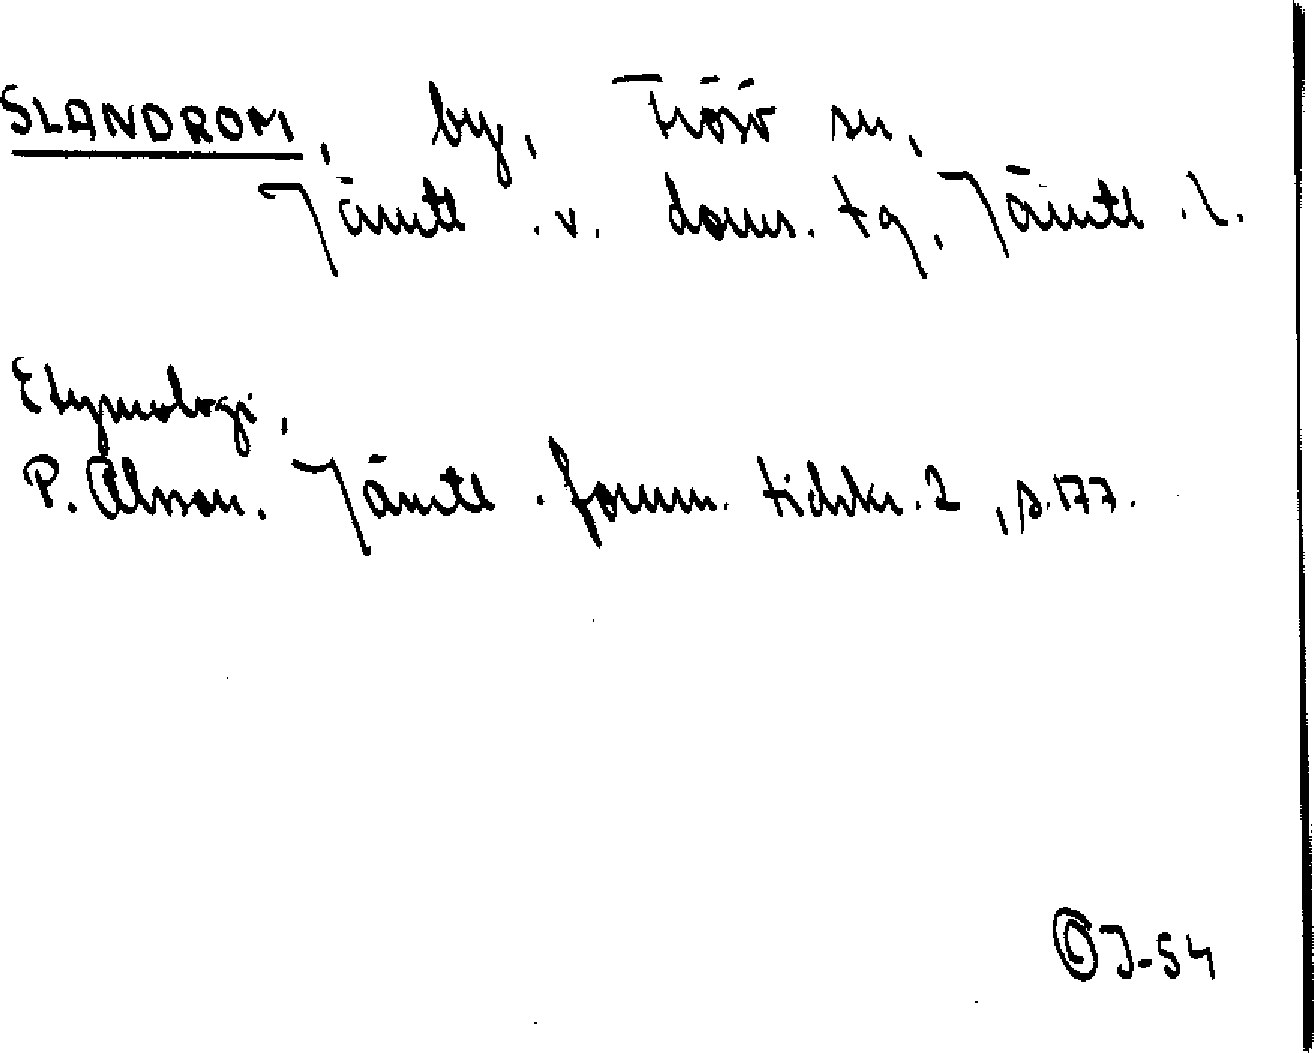 SLANDROM, by, Frösö sn,
Jämtl. v. doms. tg, Jämtl. l.
Etymologi,
P. Olsson. Jämtl. fornm. tidskr. 2, s. 177.
J-54